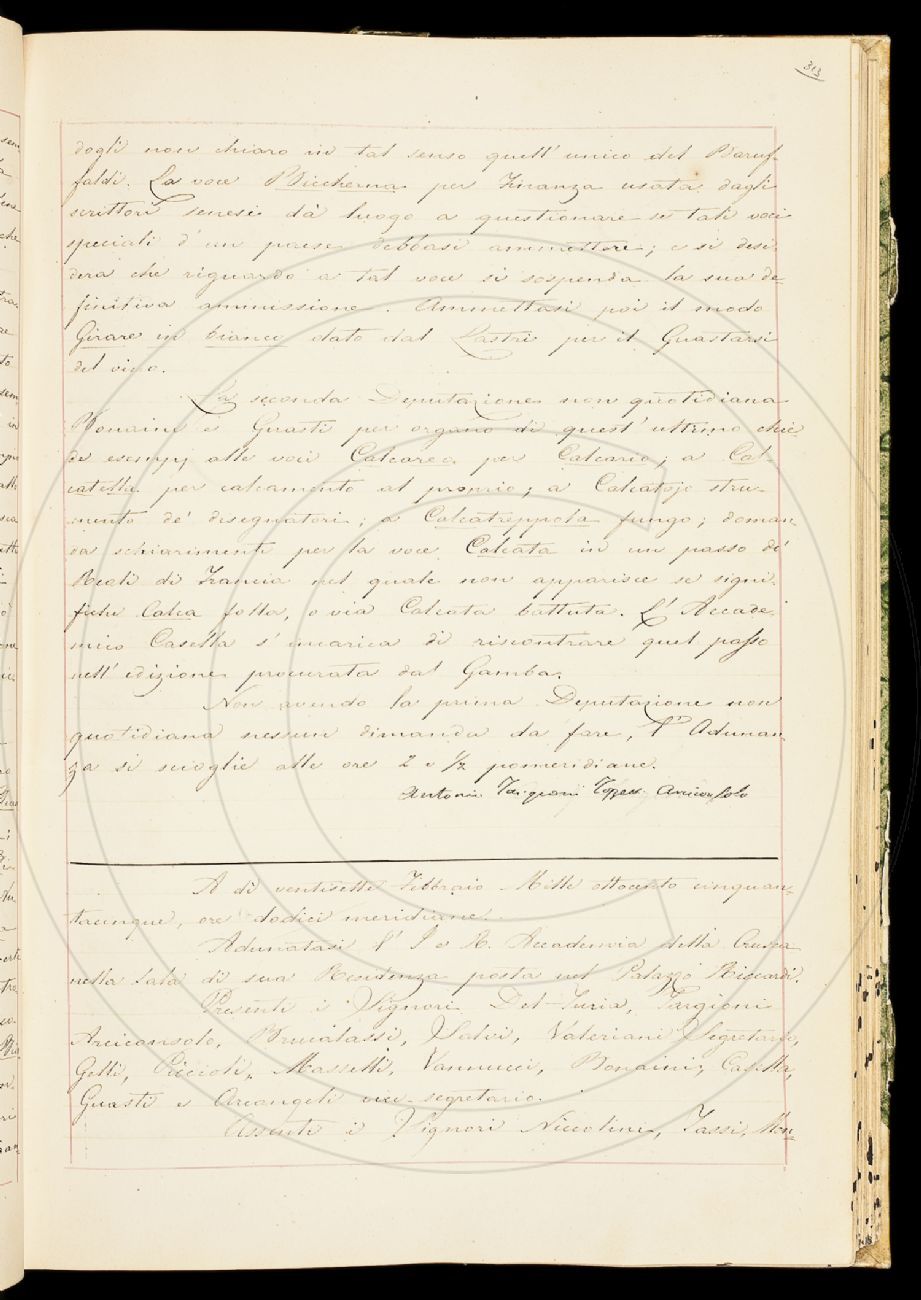 313
dogli non chiaro in tal senso quell' unico del Baruf-
faldi. La voce Biccherna per Finanza usata dagli
scrittori senesi dà luogo a questionare se tali voci
speciali d' un paese debbasi ammettere; e si desi-
dera che riguardo a tal voce si sospenda la sua de-
finitiva ammissione. Ammettasi poi il modo
Girare in bianco dato dal Lastri per il Guastarsi
del vino.
La seconda Deputazione non quotidiana
Bonaini e Guasti per organo di quest' ultimo chie-
de esempj alle voci Calcarea per Calcario; a Cal-
catella per calcamento al proprio; a Calcatojo stru-
mento de' disegnatori; a Calcatreppola fungo; doman-
da schiarimenti per la voce Calcata in un passo de'
Reali di Francia nel quale non apparisce se signi-
fichi Calca folla, o via Calcata battuta. L' Accade-
mico Casella s' incarica di riscontrare quel passo
nell' edizione procurata dal Gamba.
Non avendo la prima Deputazione non
quotidiana nessun dimanda da fare, l' Adunan-
za si scioglie alle ore 2 e 1/2 pomeridiane.
Antonio Targioni Tozzetti Arciconsolo
A dì ventisette Febbraio Mille ottocento cinquan-
tacinque, ore dodici meridiane.
Adunatasi l' I. e R. Accademia della Crusca
nella Sala di sua Residenza posta nel Palazzo Riccardi.
Presenti i Signori Del-Furia, Targioni
Arciconsolo, Brucalassi, Salvi, Valeriani Segretario,
Gelli, Piccioli, Masselli, Vannucci, Bonaini, Casella,
Guasti e Arcangeli vice-segretario.
Assenti i Signori Niccolini, Tassi, Mon-